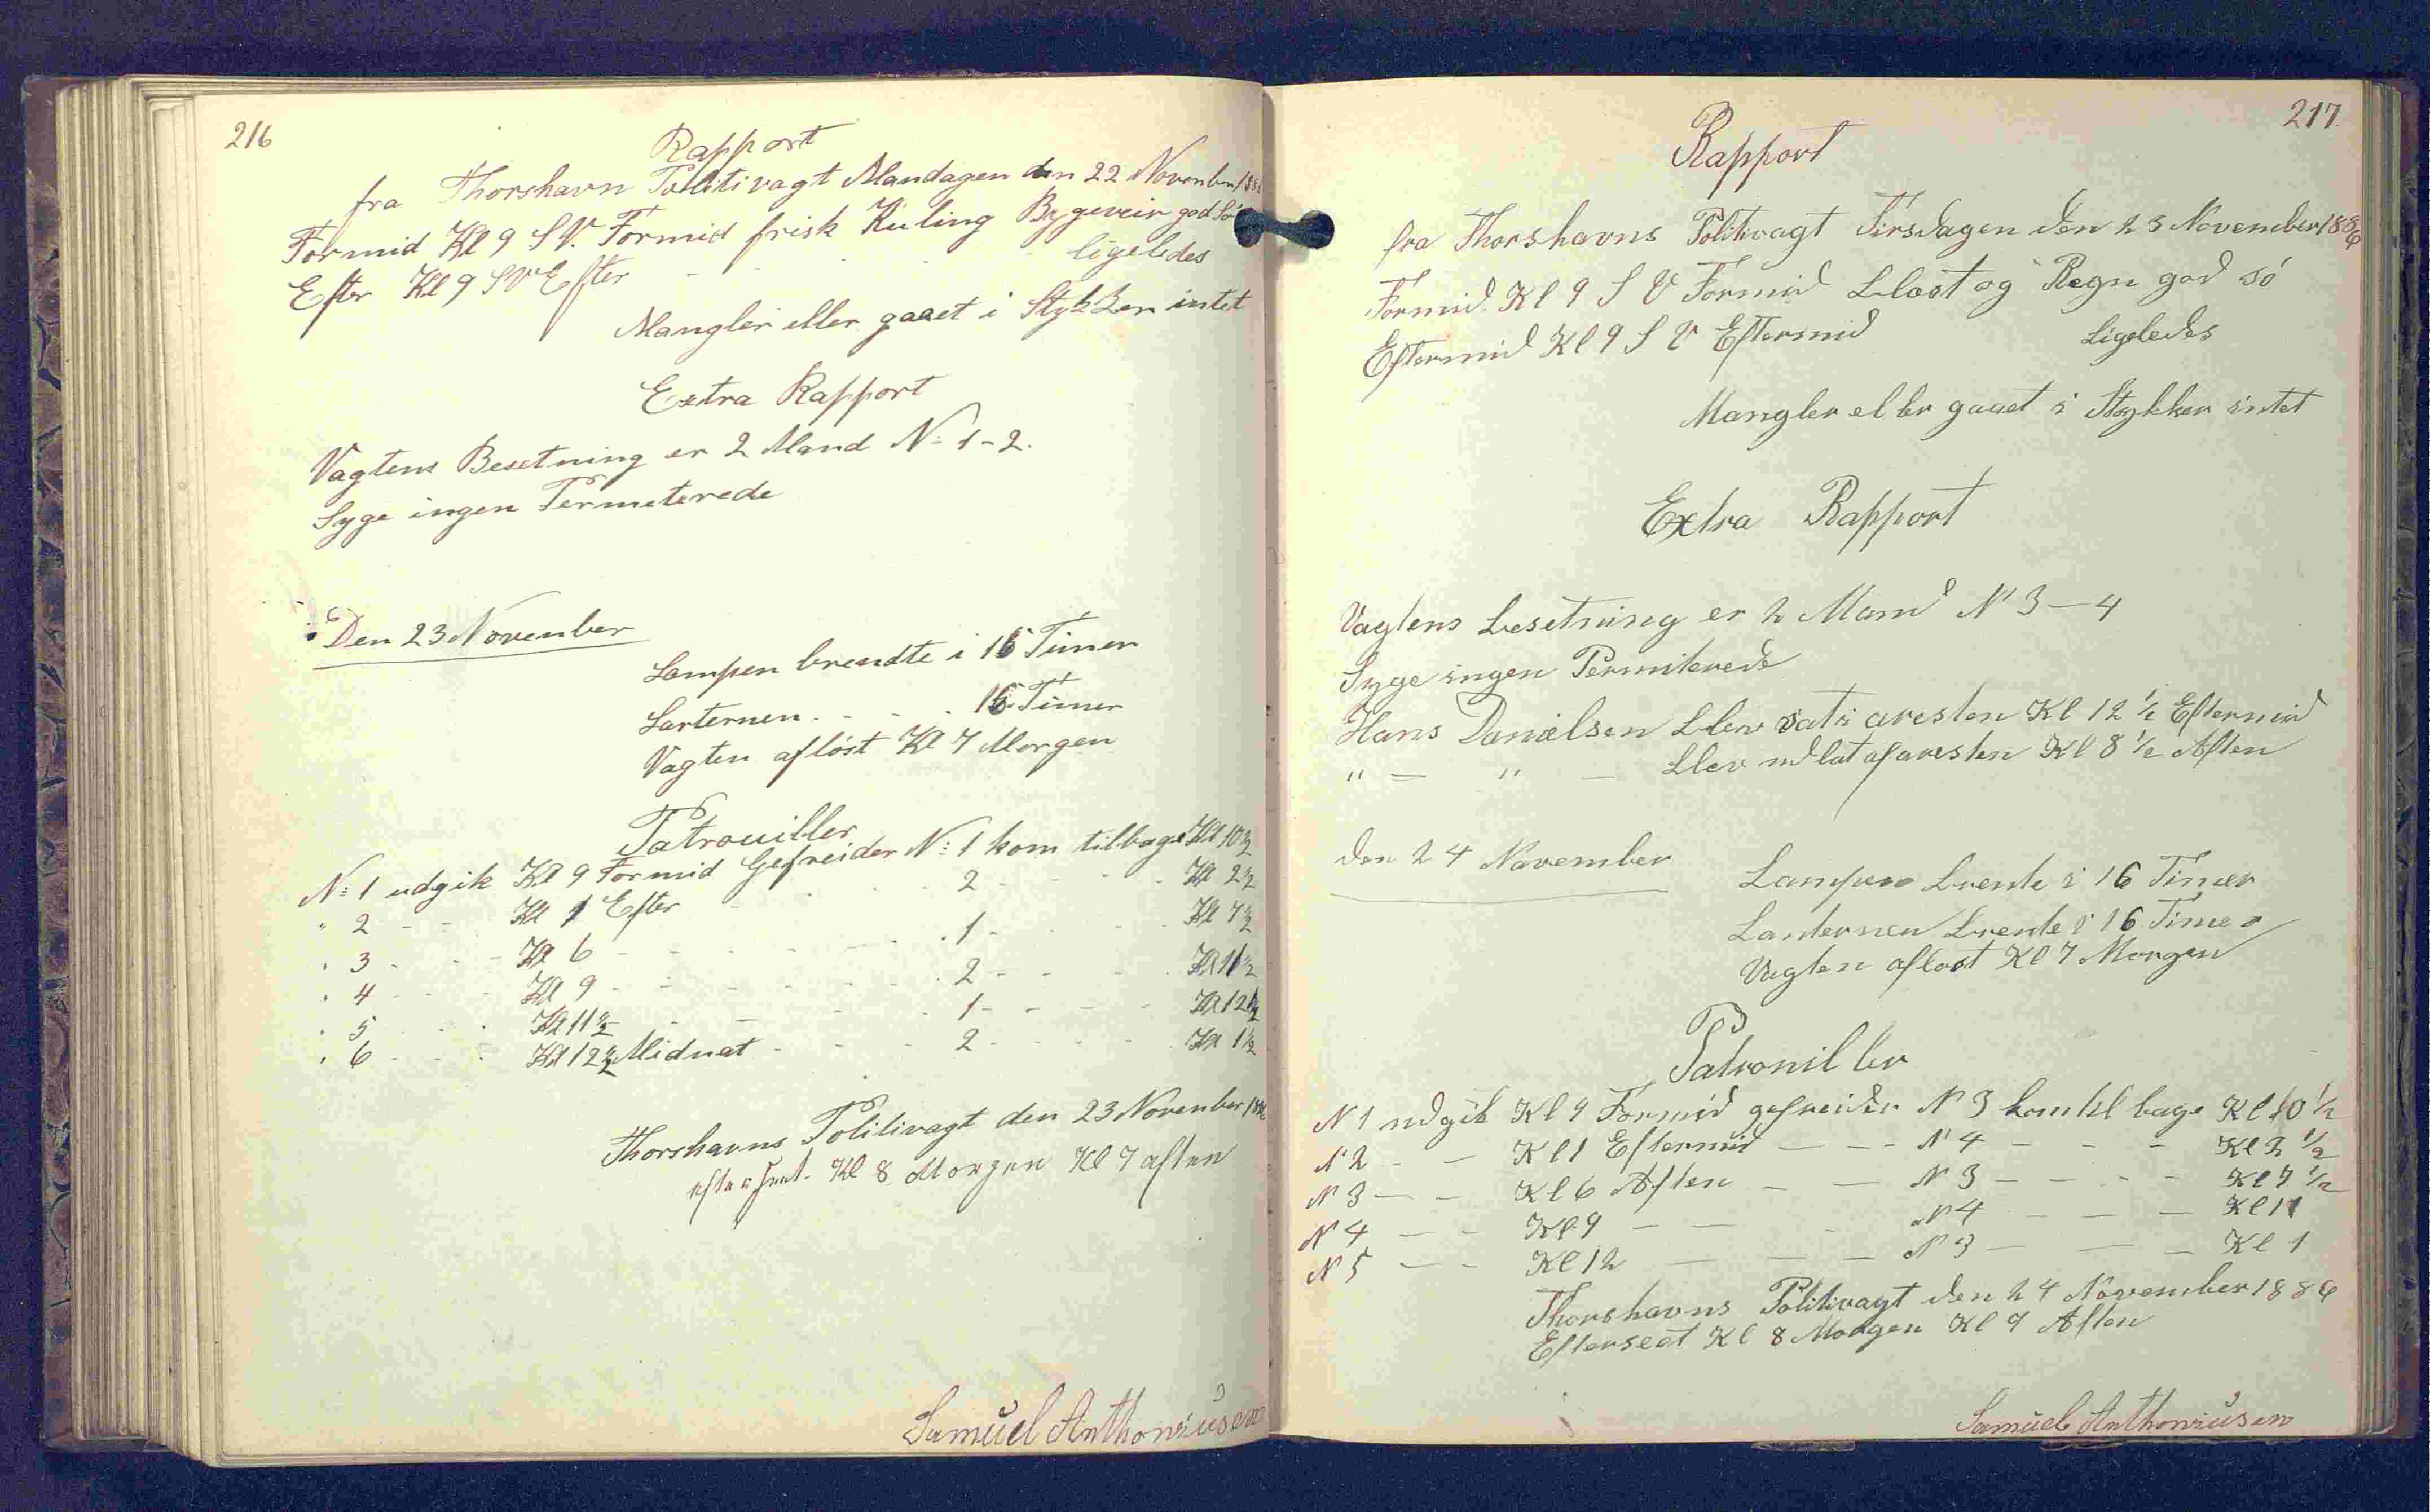 216
Rapport
fra Thorshavn Politivagt Mandagen den 22 November
Formid Kl 9 S.V. Formid frisk Kuling Bygeveir god Sö
Efter Kl 9 SV Efter - - - ligeledes
Mangler eller gaaet i Stykker intet
Extra Rapport
Vagtens Besetning er 2 Mand No 1-2.
Syge ingen Permeterede
Den 23 November
Lampen brendte i 16 Timer
Larternen - - - 16 Timer
Vagten aflöst Kl 7 Morgen
Patrouiller
No 1 udgik Kl 9 Formid Gefreider No 1 kom tilbage Kl 10½
" 2 - - Kl 1 Efter - - - 2 - - - Kl 2½
" 3 - - Kl 6 - - - 1 - - - Kl 7½
" 4 - - Kl 9 - - - 2 - - - Kl 11½
" 5 - - Kl 11½ - - - 1 - - - Kl 12½
" 6 - - Kl 12½ Midnat - - - 2 - - - Kl 1½
Thorshavns Politivagt den 23 November
Kl 8 Morgen Kl 7 aften
Samuel Anthoniusen
217.
Rapport
fra Thorshavns Politivagt Tirsdagen den 23 November 1886
Formid. Kl 9 S V Formid blast og Regn god sö
Eftermid Kl 9 S V Eftermid Ligeledes
Mangler eller gaaet i Stykker intet
Extra Rapport
Vagtens besetning er 2 Mand No 3-4
Syge ingen Permiterede
Hans Danielsen blev sat i aresten Kl 12½ Eftermid
" — " — blev udlat af aresten Kl 8½ Aften
den 24 November
Lampen brente i 16 Timer
Lanternen brente i 16 Timer
Vagten aflost Kl 7 Morgen
Patroniller
N 1 udgik Kl 9 Formid gefreider No 3 kom til bage Kl 10½
N 2 - - Kl 1 Eftermid - - - N 4 - - - Kl 2½
N 3 - - Kl 6 Aften - - N 3 - - - - Kl 7½
N 4 - - Kl 9 - - - N 4 - - - Kl 11
N 5 - - Kl 12 - - - N 3 - - - Kl 1
Thorshavns Politivagt den 24 November 1886
Efterseet Kl 8 Morgen Kl 7 Aften
Samuel Anthoniusen